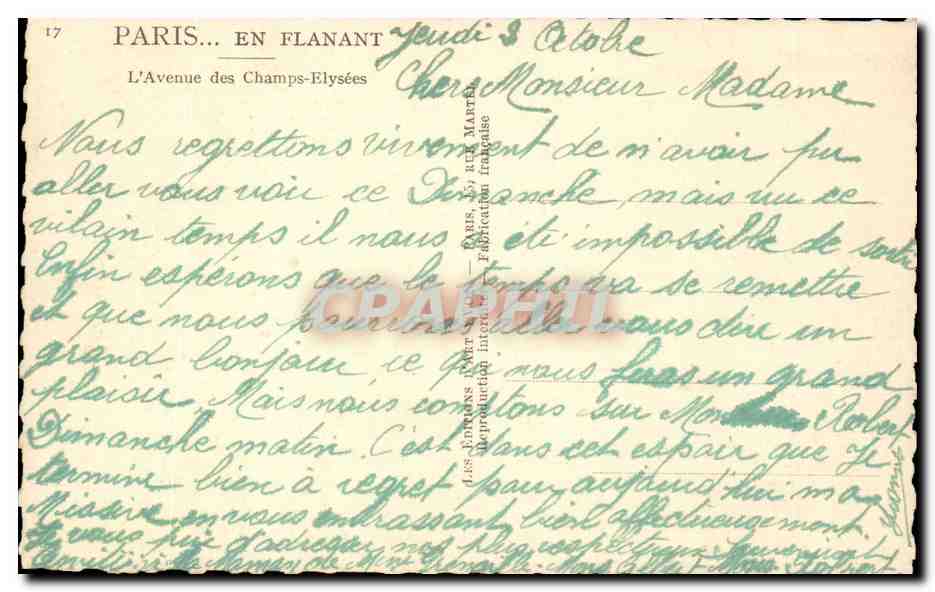 17
PARIS... EN FLANANT
L'Avenue des Champs-Elysées
Jeudi 3 Octobre
Chers Monsieur Madame
Nous regrettons vivement de n'avoir pu
aller vous voir ce Dimanche, mais vu ce
vilain temps il nous a été impossible de sortir
Enfin espérons que le temps va se remettre
et que nous pourrons aller vous dire un
grand bonjour ce qui nous feras un grand
plaisir. Mais nous comptons sur Robert
Dimanche matin. C'est dans cet espoir que je
termine bien à regret pour aujourd'hui ma
Missive en vous embrassant bien affectueusement
Je vous prie d'adresser nos plus respectueux
LES ÉDITIONS D'ART — PARIS, 15, RUE MARTEL
Reproduction interdite — Fabrication française
CPAPHIL